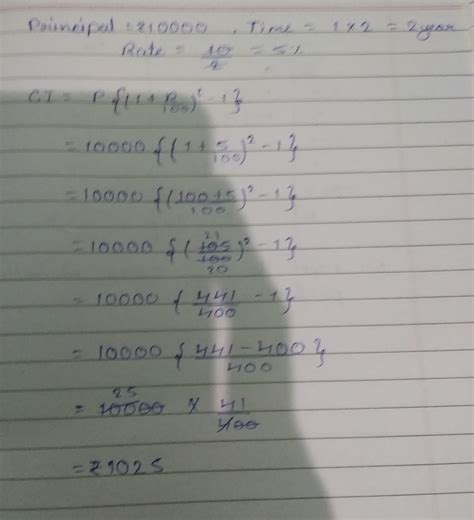 Principal = ₹10000, Time = 1×2 = 2year
Rate = 10/2 = 5%
CI = P{(1+R/100)² - 1}
= 10000 {(1+5/100)² - 1}
= 10000 {(100+5/100)² - 1}
= 10000 {(21 105/100 20)² - 1}
= 10000 {441/400 - 1}
= 10000 {441-400/400}
= 25 10000 × 41/400
= ₹1025